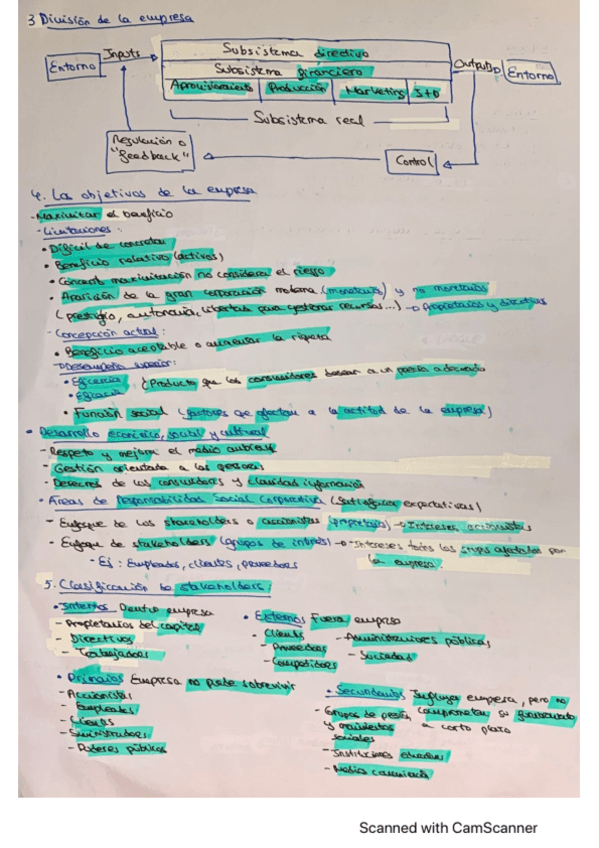 3 División de la empresa
Entorno
Inputs
Subsistema directivo
Subsistema financiero
Aprovisionamiento
Producción
Marketing
I+D
Outputs
Entorno
Subsistema real
Regulación o "feedback"
Control
4. Los objetivos de la empresa
- Maximizar el beneficio
- Limitaciones:
• Difícil de concretar
• Beneficio relativo (activos)
• Concepto maximización no considera el riesgo
• Aparición de la gran corporación moderna (monetarios) y no monetarios
(prestigio, autonomía, libertad para gestionar recursos...) → Propietarios y directivos
- Concepción actual:
• Beneficio aceptable o aumentar la riqueza
→ Desempeño superior:
• Eficiencia
• Eficacia
{ Producto que los consumidores desean a un precio adecuado
• Función social (factores que afectan a la actitud de la empresa)
• Desarrollo económico, social y cultural
- Respeto y mejora el medio ambiente
- Gestión orientada a las personas
- Derechos de los consumidores y claridad informativa
• Áreas de Responsabilidad Social Corporativa (satisfacer expectativas)
- Enfoque de los shareholders o accionistas (propietario) → Intereses accionistas
- Enfoque de stakeholders (grupos de interés) → Intereses todos los grupos afectados por
la empresa.
- Ej: Empleados, clientes, proveedores
5. Clasificación de stakeholders:
• Internos Dentro empresa
- Propietarios del capital
- Directivos
- Trabajadores
• Externos Fuera empresa
- Clientes
- Proveedores
- Competidores
- Administraciones públicas
- Sociedad
• Primarios Empresa no puede sobrevivir
- Accionistas
- Empleados
- Clientes
- Suministradores
- Poderes públicos
• Secundarios Influyen empresa, pero no
comprometen su funcionamiento
a corto plazo
- Grupos de presión
y movimientos
sociales
- Instituciones educativas
- Medios comunicación
Scanned with CamScanner